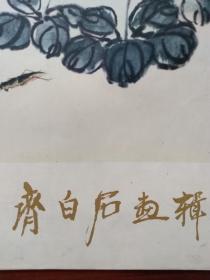 齊白石画輯